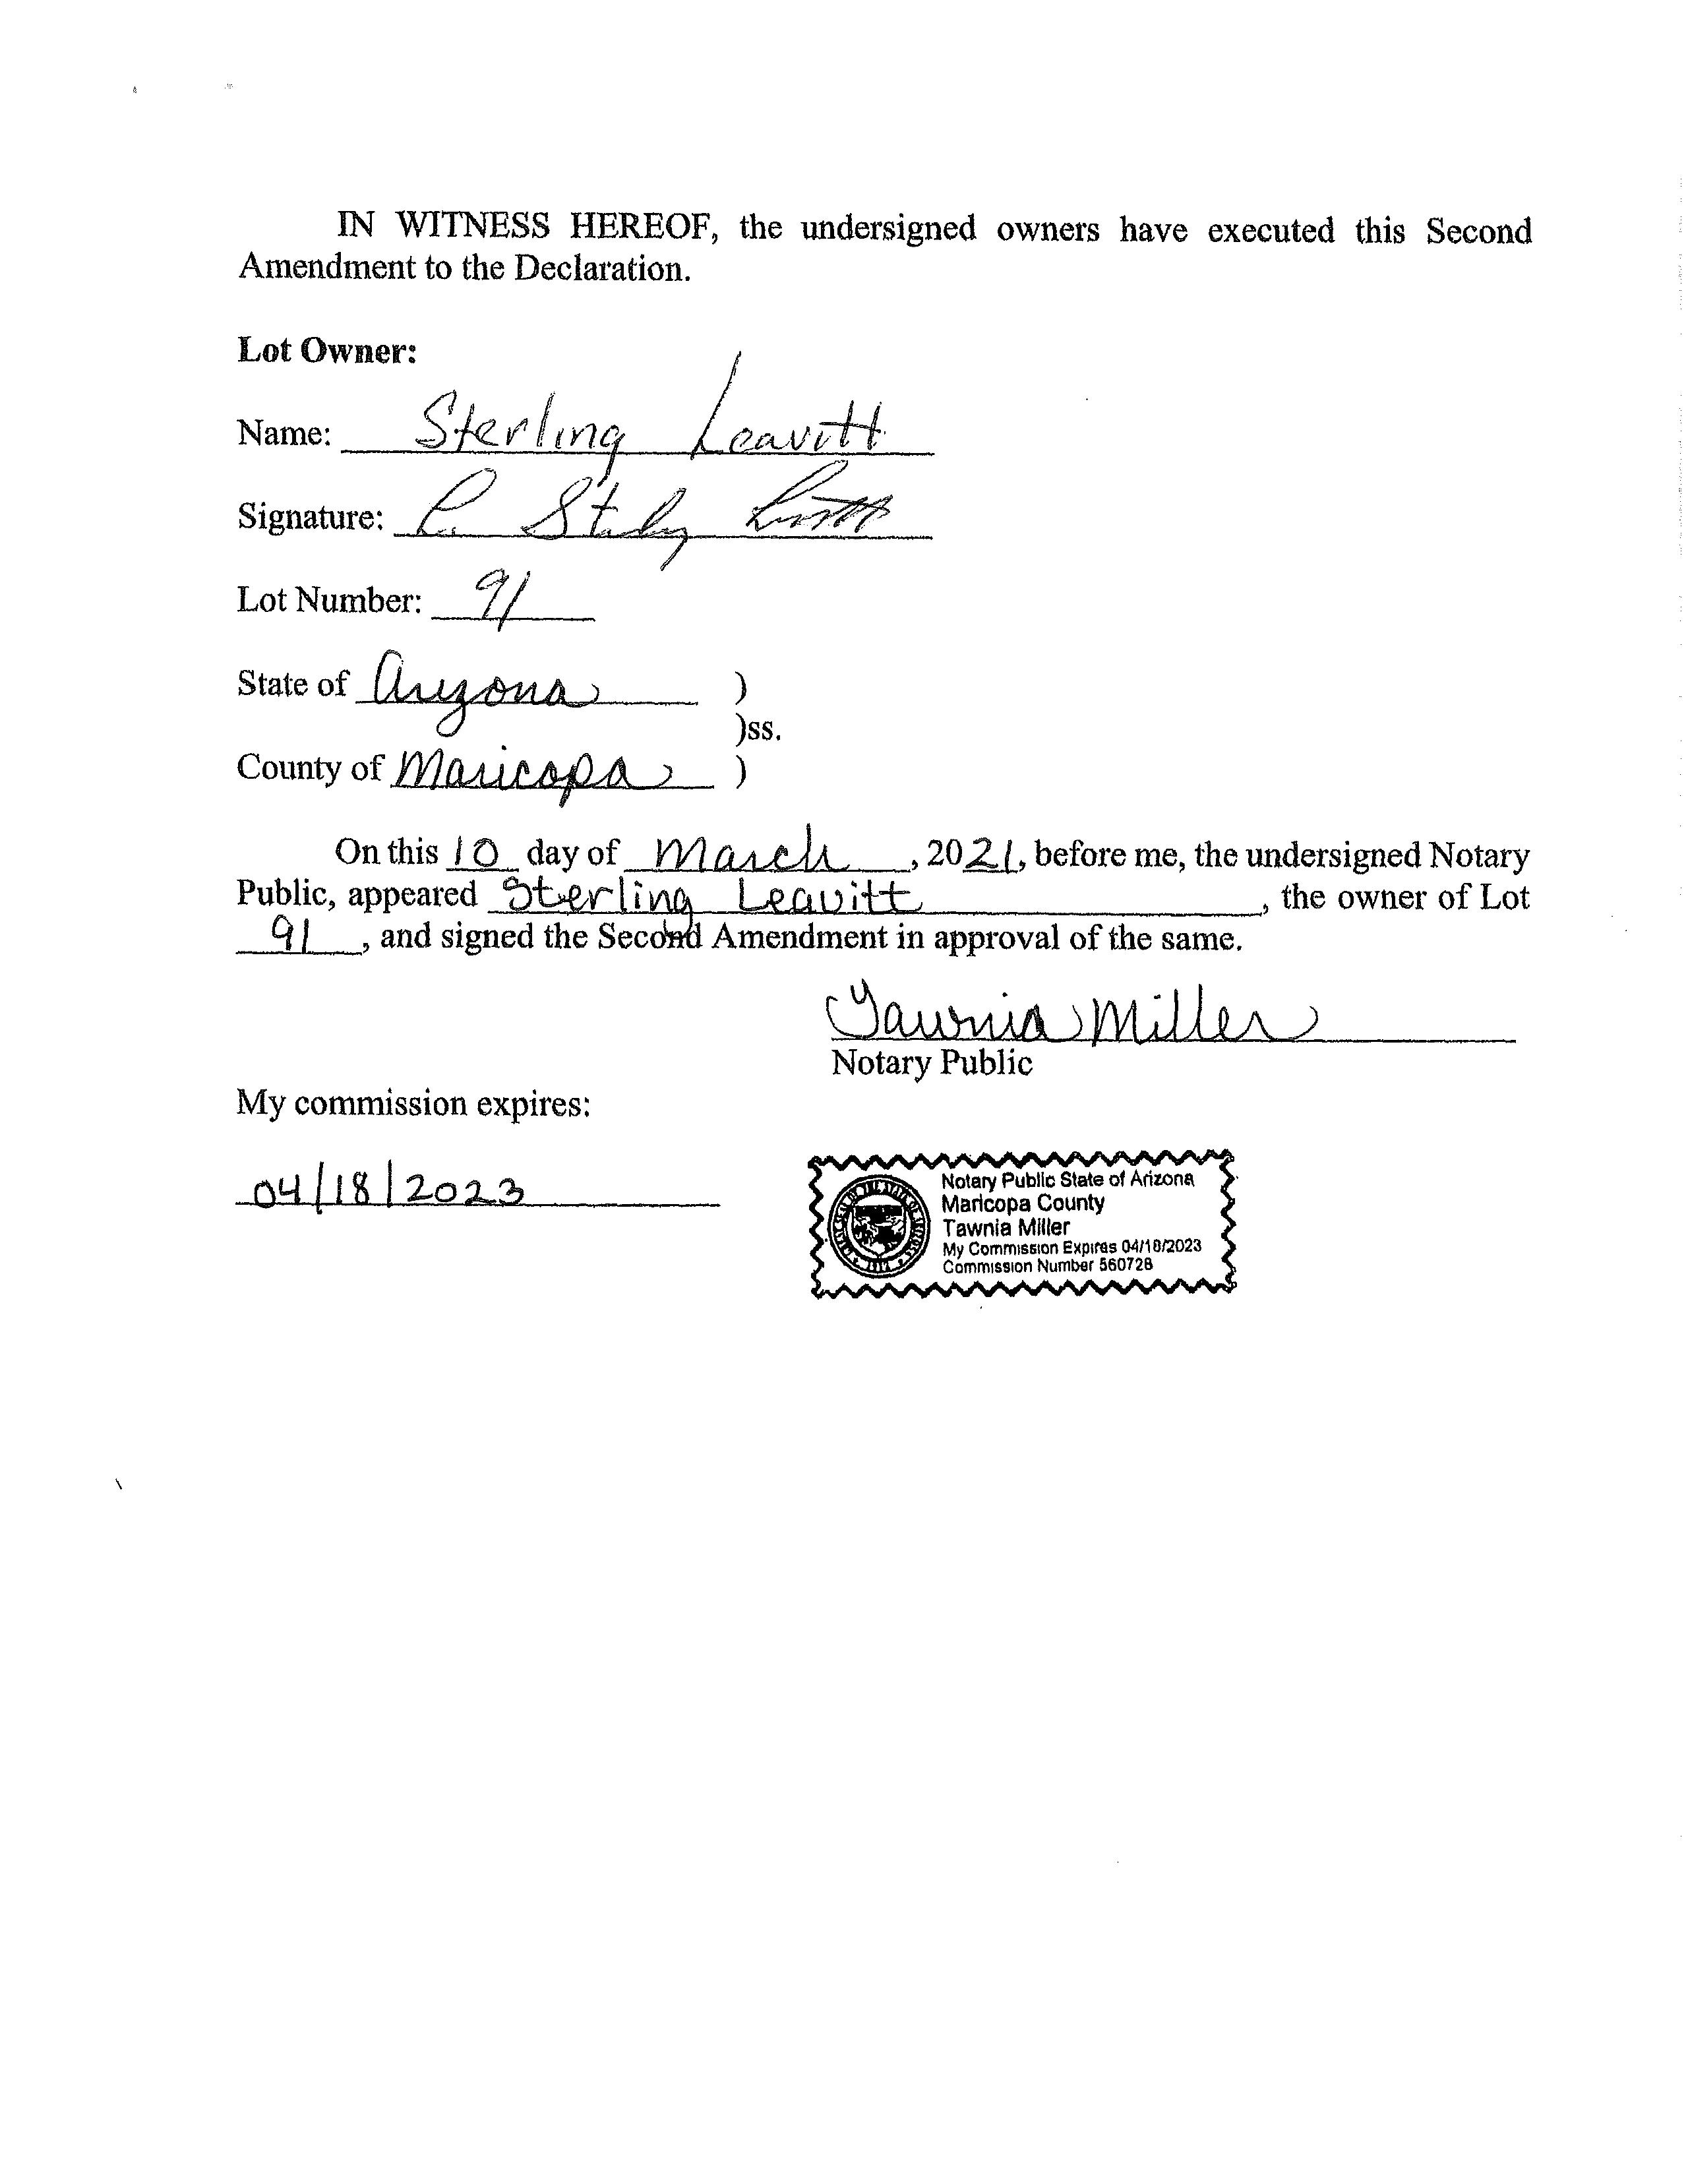 IN WITNESS HEREOF, the undersigned owners have executed this Second
Amendment to the Declaration.
Lot Owner:
Name: Sterling Leavitt
Signature:
Lot Number: 91
State of Arizona )
)ss.
County of Maricopa )
On this 10 day of March, 2021, before me, the undersigned Notary
Public, appeared Sterling Leavitt, the owner of Lot
91, and signed the Second Amendment in approval of the same.
Tawnia Miller
Notary Public
My commission expires:
04/18/2023
Notary Public State of Arizona
Maricopa County
Tawnia Miller
My Commission Expires 04/18/2023
Commission Number 560728